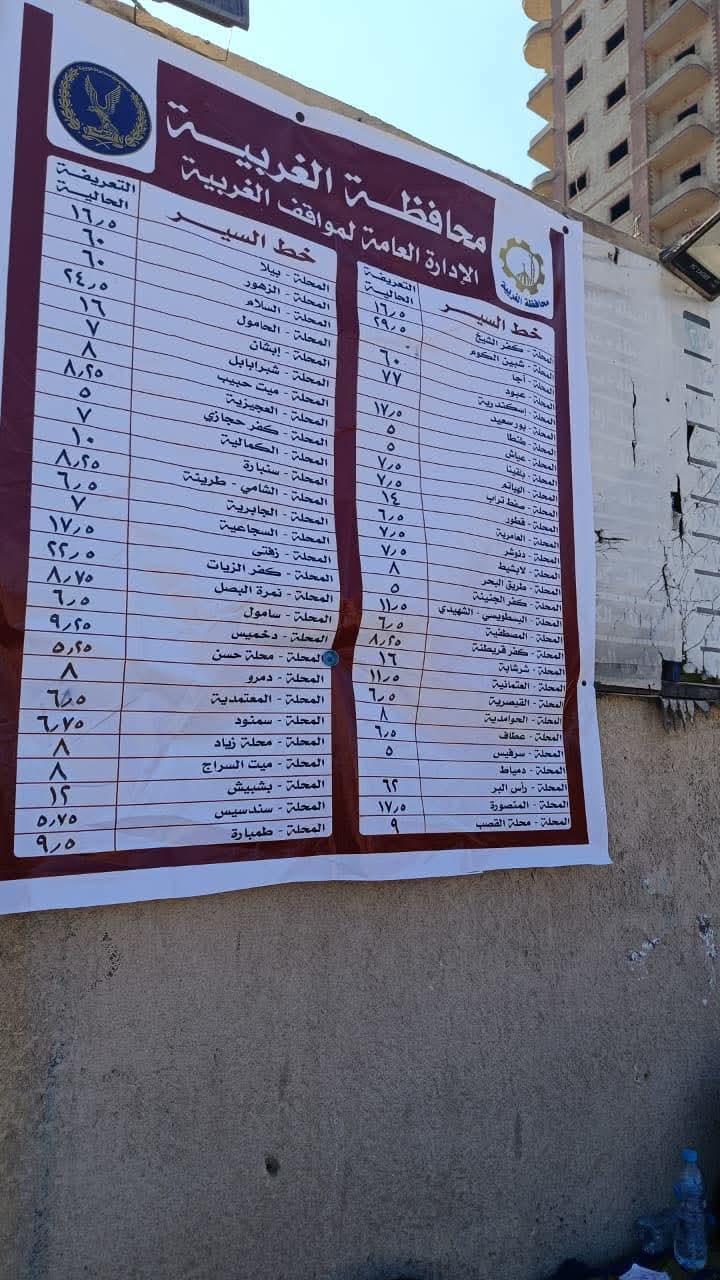 محافظة الغربية
الإدارة العامة لمواقف الغربية
محافظة الغربية
خط السير التعريفة الحالية
المحلة - كفر الشيخ ١٦٫٥
المحلة - شبين الكوم ٢٩٫٥
المحلة - أجا
المحلة - عبود ٦٠
المحلة - إسكندرية ٧٧
المحلة - بورسعيد
المحلة - طنطا ١٧٫٥
المحلة - عياش ٥
المحلة - بلقينا ٥
المحلة - الهياتم ٧٫٥
المحلة - صفط تراب ٧٫٥
المحلة - قطور ١٤
المحلة - العامرية ٦٫٥
المحلة - دنوشر ٧٫٥
المحلة - لابشيط ٧٫٥
المحلة - طريق البحر ٨
المحلة - كفر الجنينة ٥
المحلة - البسطويسي - الشهيدي ١١٫٥
المحلة - المصطفية ٦٫٥
المحلة - كفر قريطنة ٨٫٢٥
المحلة - شرشابة ١٦
المحلة - العثمانية ١١٫٥
المحلة - القيصرية ٦٫٥
المحلة - الحوامدية ٨
المحلة - عطاف ٦٫٥
المحلة - سرفيس ٥
المحلة - دمياط
المحلة - رأس البر ٦٢
المحلة - المنصورة ١٧٫٥
المحلة - محلة القصب ٩
خط السير التعريفة الحالية
المحلة - بيلا ١٦٫٥
المحلة - الزهور ٦٠
المحلة - السلام ٦٠
المحلة - الحامول ٢٤٫٥
المحلة - إبشان ١٦
المحلة - شبرابابل ٧
المحلة - ميت حبيب ٨
المحلة - العجيزية ٨٫٢٥
المحلة - كفر حجازي ٥
المحلة - الكمالية ٧
المحلة - سنبارة ١٠
المحلة - الشامي - طرينة ٨٫٢٥
المحلة - الجابرية ٦٫٥
المحلة - السجاعية ٧
المحلة - زفتى ١٧٫٥
المحلة - كفر الزيات ٢٢٫٥
المحلة - نمرة البصل ٨٫٧٥
المحلة - سامول ٦٫٥
المحلة - دخميس ٩٫٢٥
المحلة - محلة حسن ٥٫٢٥
المحلة - دمرو ٨
المحلة - المعتمدية ٦٫٥
المحلة - سمنود ٦٫٧٥
المحلة - محلة زياد ٨
المحلة - ميت السراج ٨
المحلة - بشبيش ١٢
المحلة - سندسيس ٥٫٧٥
المحلة - طمبارة ٩٫٥